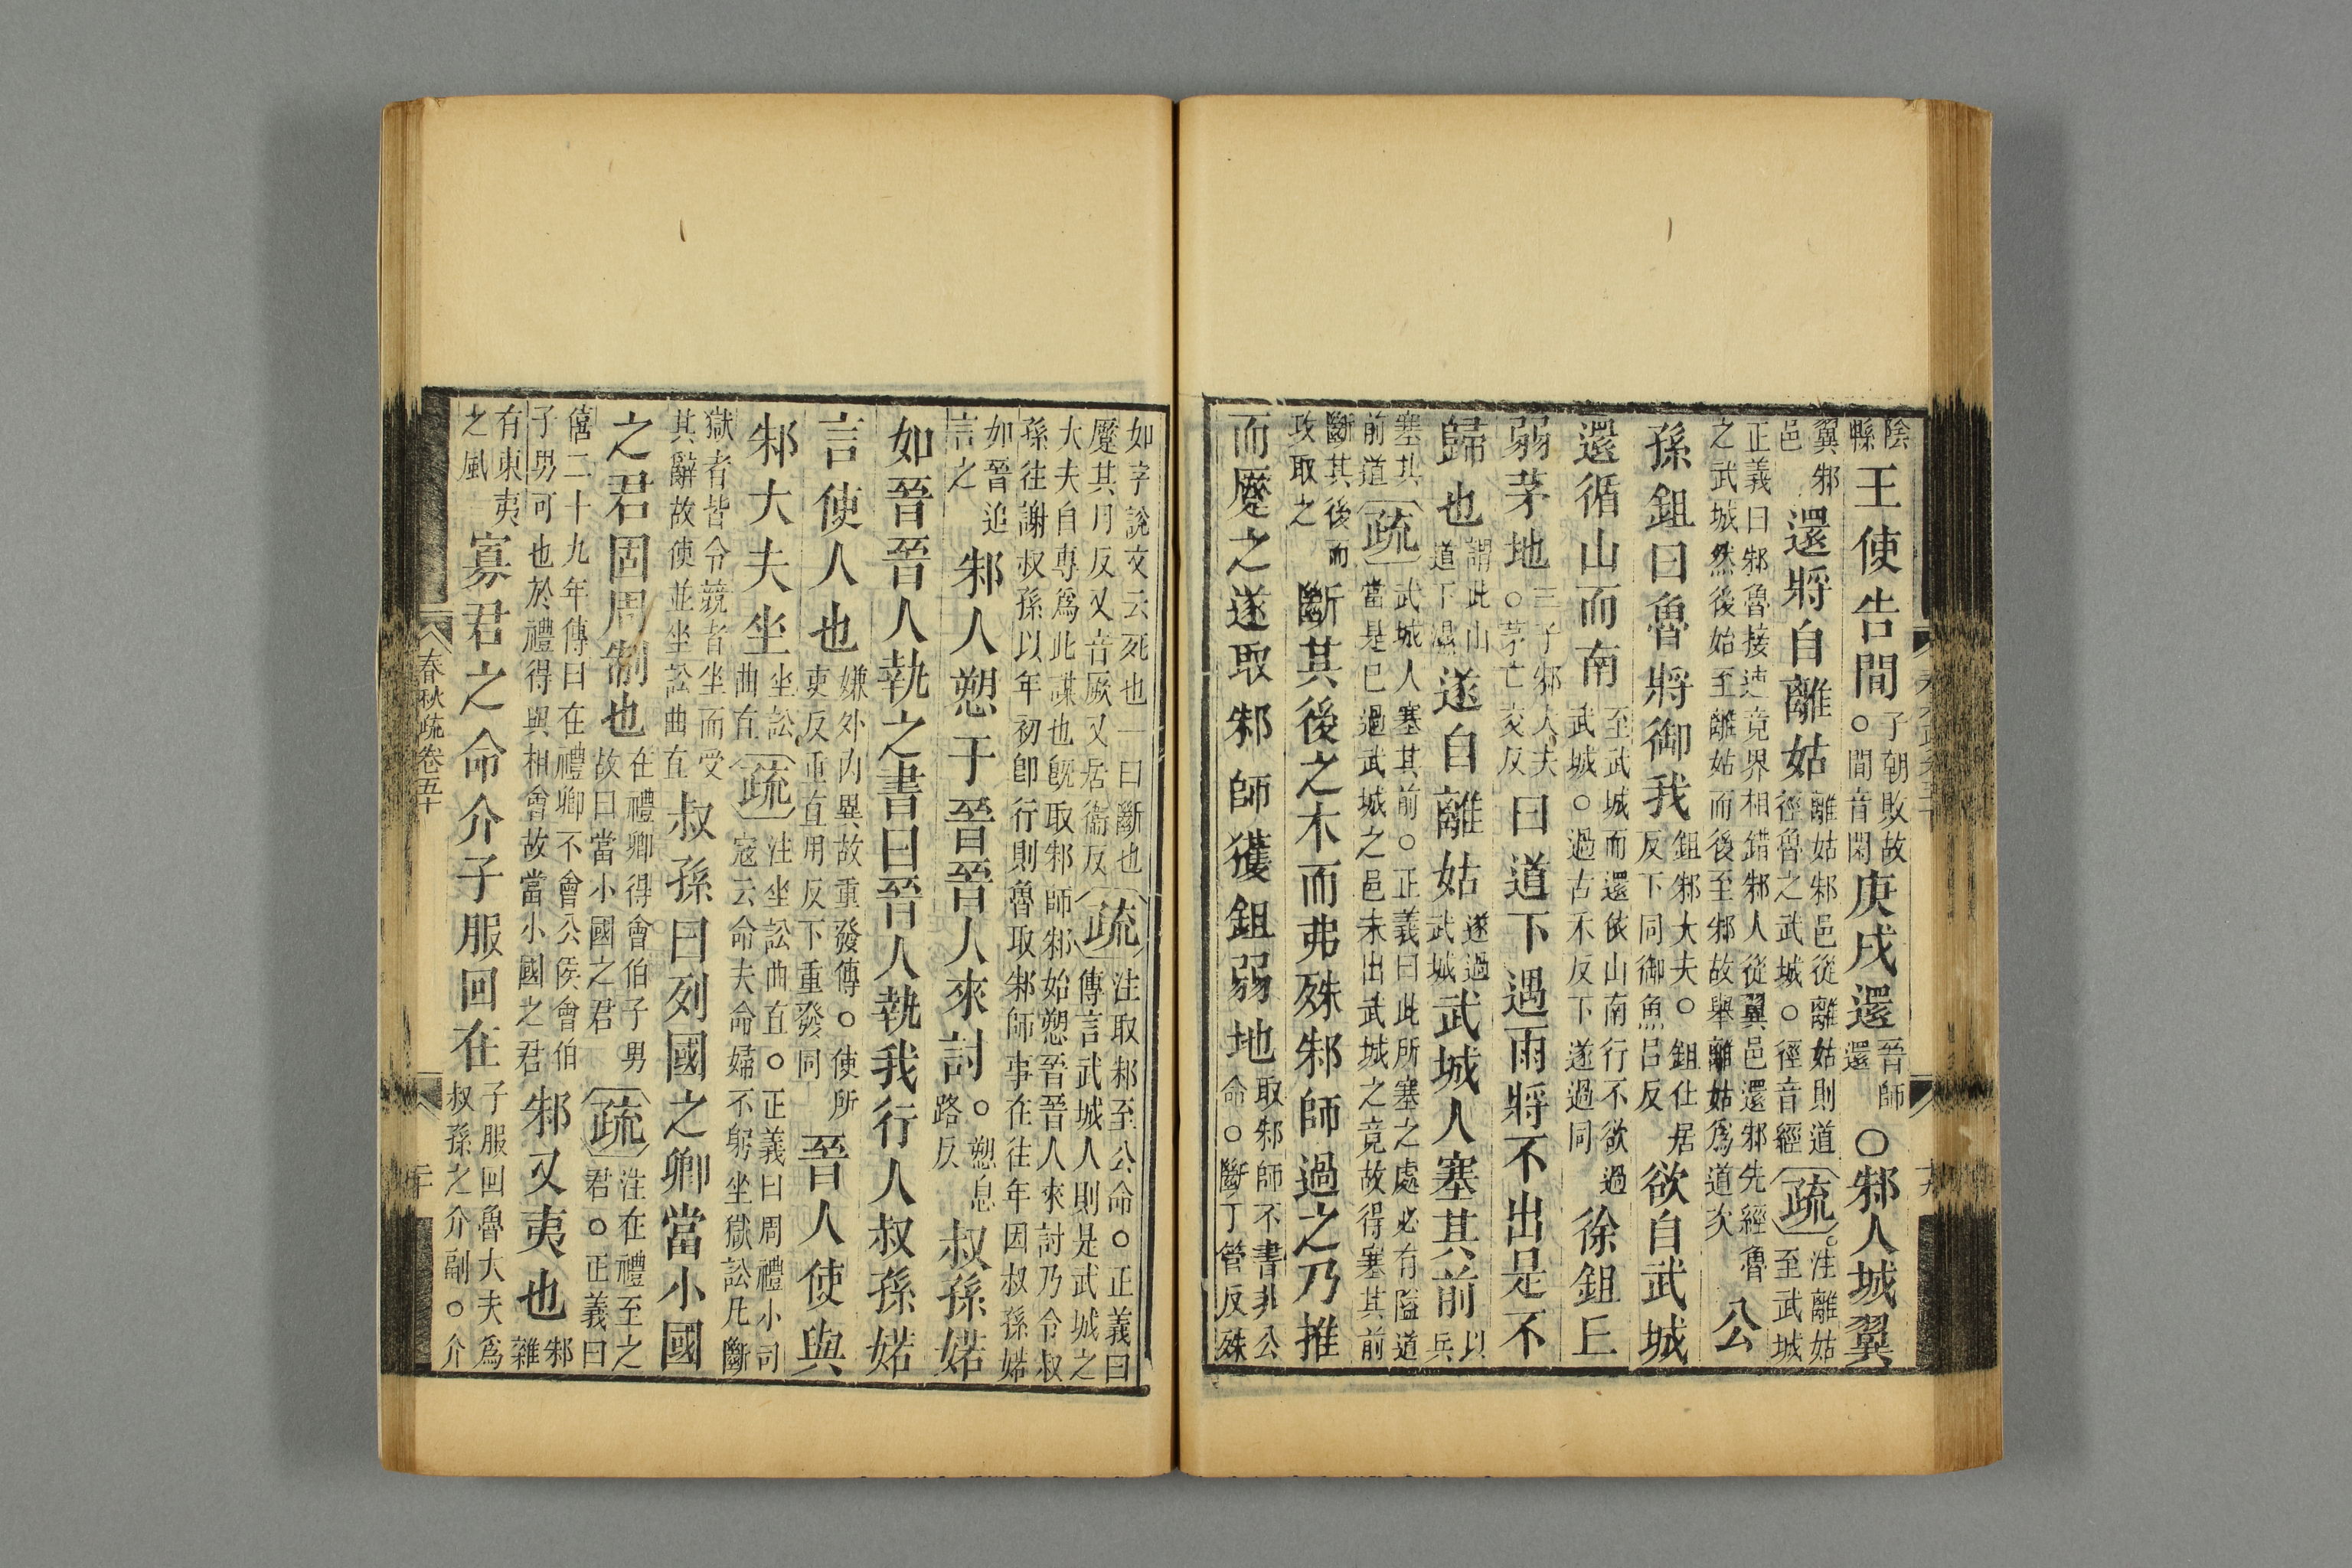 陰縣王使告間子朝敗故○間音閑庚戌還晉師還○邾人城翼
翼邾邑還將自離姑離姑邾邑從離姑則道徑魯之武城○徑音經疏注離姑至武城○
正義曰邾魯接連竟界相錯邾人從翼邑還邾先經魯之武城然後始至離姑而後至邾故舉離姑爲道次公
孫鉏曰魯將御我鉏邾大夫○鉏仕居反下同御魚呂反欲自武城
還循山而南至武城而還依山南行不欲過武城○過古禾反下遂過同徐鉏丘
弱茅地三子邾大夫○茅亡交反曰道下遇雨將不出是不
歸也謂此山道下濕遂自離姑遂過武城武城人塞其前以兵
塞其前道疏武城人塞其前○正義曰此所塞之處必有隘道當是已過武城之邑未出武城之竟故得塞其前
斷其後而攻取之斷其後之木而弗殊邾師過之乃推
而蹷之遂取邾師獲鉏弱地取邾師不書非公命○斷丁管反殊
如字說文云死也一曰斷也蹷其月反又音厥又居衞反疏注取邾至公命○正義曰傳言武城人則是武城之
大夫自專爲此謀也旣取邾師邾始愬晉晉人來討乃令叔孫往謝叔孫以年初卽行則魯取邾師事在往年因叔孫婼
如晉追言之邾人愬于晉晉人來討○愬息路反叔孫婼
如晉晉人執之書曰晉人執我行人叔孫婼
言使人也嫌外內異故重發傳○使所吏反重直用反下重發同晉人使與
邾大夫坐坐訟曲直疏注坐訟曲直○正義曰周禮小司寇云命夫命婦不躬坐獄訟凡斷
獄者皆令競者坐而受其辭故使並坐訟曲直叔孫曰列國之卿當小國
之君固周制也在禮卿得會伯子男故曰當小國之君疏注在禮至之君○正義曰
僖二十九年傳曰在禮卿不會公侯會伯子男可也於禮得與相會故當小國之君邾又夷也邾雜
有東夷之風寡君之命介子服回在子服回魯大夫爲叔孫之介副○介
春秋疏卷五十
二十